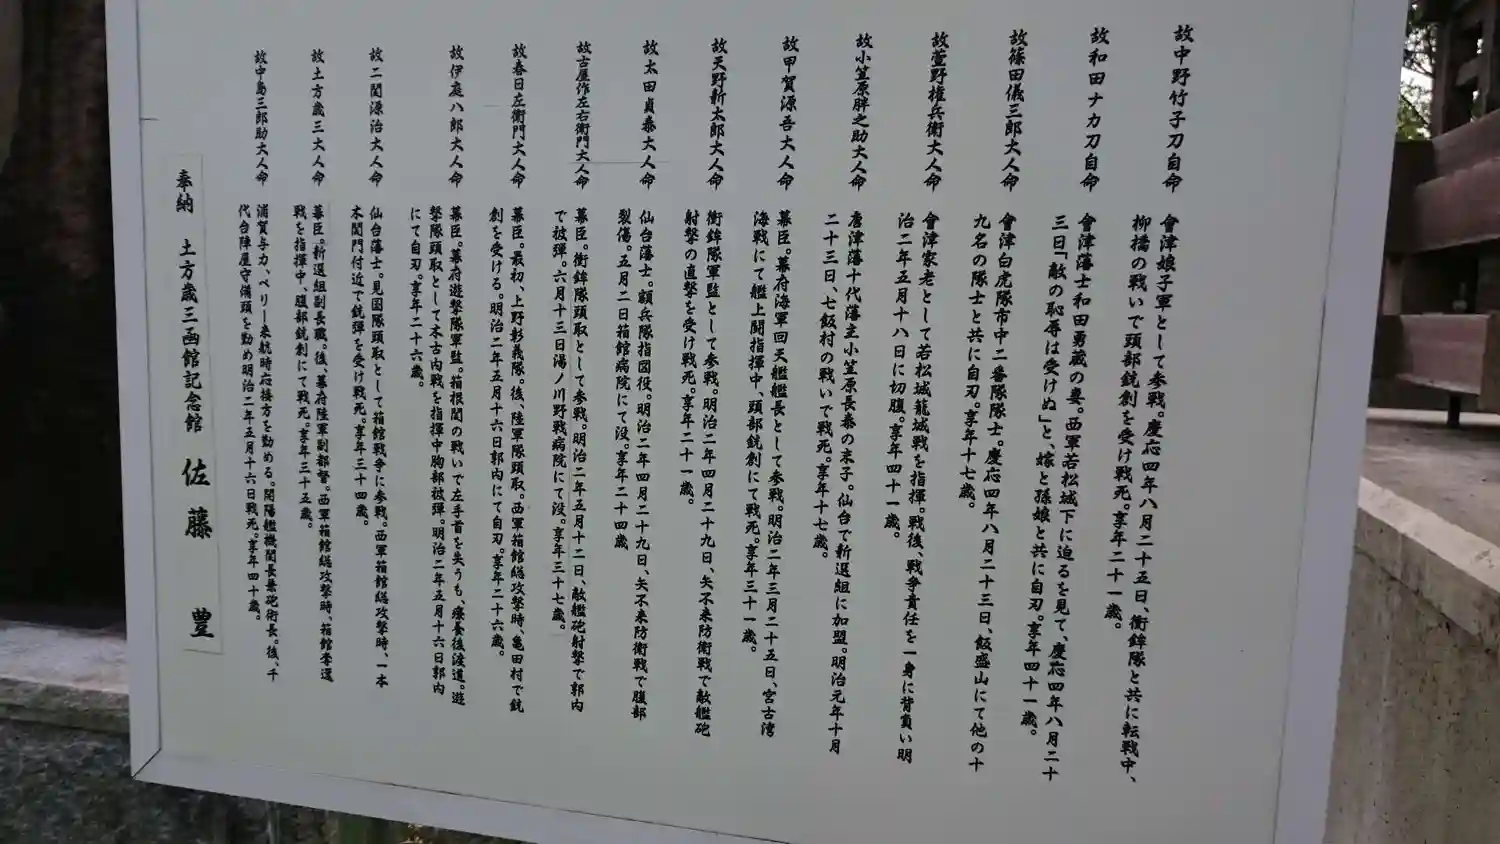 故中野竹子刀自命
會津娘子軍として参戦。慶応四年八月二十五日、衝鉾隊と共に転戦中、
柳橋の戦いで頭部銃創を受け戦死。享年二十一歳。
故和田ナカ刀自命
會津藩士和田勇蔵の妻。西軍若松城下に迫るを見て、慶応四年八月二十
三日「敵の恥辱は受けぬ」と、嫁と孫娘と共に自刃。享年四十一歳。
故篠田儀三郎大人命
會津白虎隊市中二番隊隊士。慶応四年八月二十三日、飯盛山にて他の十
九名の隊士と共に自刃。享年十七歳。
故萱野権兵衛大人命
會津家老として若松城籠城戦を指揮。戦後、戦争責任を一身に背負い明
治二年五月十八日に切腹。享年四十一歳。
故小笠原胖之助大人命
唐津藩十代藩主小笠原長泰の末子。仙台で新選組に加盟。明治元年十月
二十三日、七飯村の戦いで戦死。享年十七歳。
故甲賀源吾大人命
幕臣。幕府海軍回天艦艦長として参戦。明治二年三月二十五日、宮古湾
海戦にて艦上闘指揮中、頭部銃創にて戦死。享年三十一歳。
故天野新太郎大人命
衝鉾隊軍監として参戦。明治二年四月二十九日、矢不来防衛戦で敵艦砲
射撃の直撃を受け戦死。享年二十一歳。
故太田貞泰大人命
仙台藩士。額兵隊指図役。明治二年四月二十九日、矢不来防衛戦で腹部
裂傷。五月二日箱館病院にて没。享年二十四歳
故古屋作左右衛門大人命
幕臣。衝鉾隊頭取として参戦。明治二年五月十二日、敵艦砲射撃で郭内
で被弾。六月十三日湯ノ川野戦病院にて没。享年三十七歳。
故春日左衛門大人命
幕臣。最初、上野彰義隊。後、陸軍隊頭取。西軍箱館総攻撃時、亀田村で銃
創を受ける。明治二年五月十六日郭内にて自刃。享年二十六歳。
故伊庭八郎大人命
幕臣。幕府遊撃隊軍監。箱根関の戦いで左手首を失うも、療養後渡道。遊
撃隊頭取として木古内戦を指揮中胸部被弾。明治二年五月十六日郭内
にて自刃。享年二十六歳。
故二関源治大人命
仙台藩士。見国隊頭取として箱館戦争に参戦。西軍箱館総攻撃時、一本
木関門付近で銃弾を受け戦死。享年三十四歳。
故土方歳三大人命
幕臣。新選組副長職。後、幕府陸軍副都督。西軍箱館総攻撃時、箱館奪還
戦を指揮中、腹部銃創にて戦死。享年三十五歳。
故中島三郎助大人命
浦賀与力、ペリー来航時応接方を勤める。開陽艦機関長兼砲術長。後、千
代台陣屋守備頭を勤め明治二年五月十六日戦死。享年四十歳。
奉納　土方歳三函館記念館　佐藤　豊